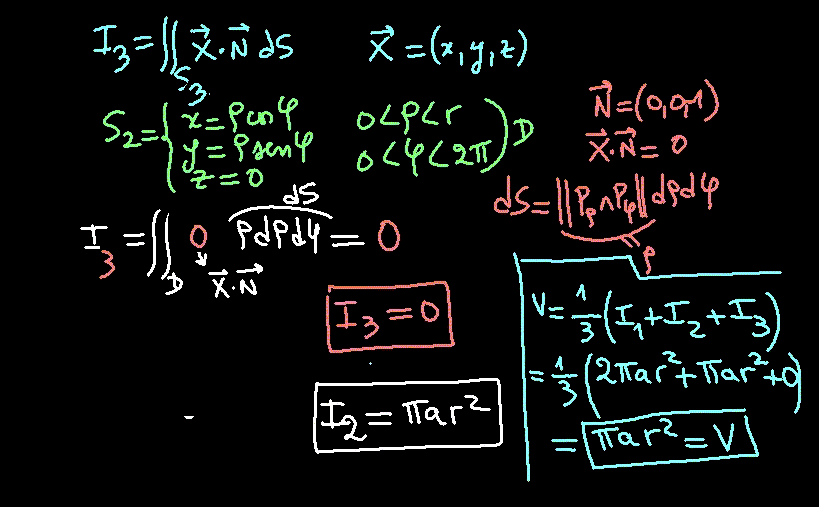 I₃ = ∬_S₃ X⃗·N⃗ dS    X⃗ = (x, y, z)
S₂ = { x = ρ cos φ    0 < ρ < r
y = ρ sen φ    0 < φ < 2π ) D
z = 0
N⃗ = (0,0,-1)
X⃗·N⃗ = 0
dS = ||P_ρ ∧ P_φ|| dρdφ
ρ
dS
I₃ = ∬_D 0 ρdρdφ = 0
X⃗·N⃗
I₃ = 0
I₂ = πar²
V = 1/3 (I₁ + I₂ + I₃)
= 1/3 (2πar² + πar² + 0)
= πar² = V